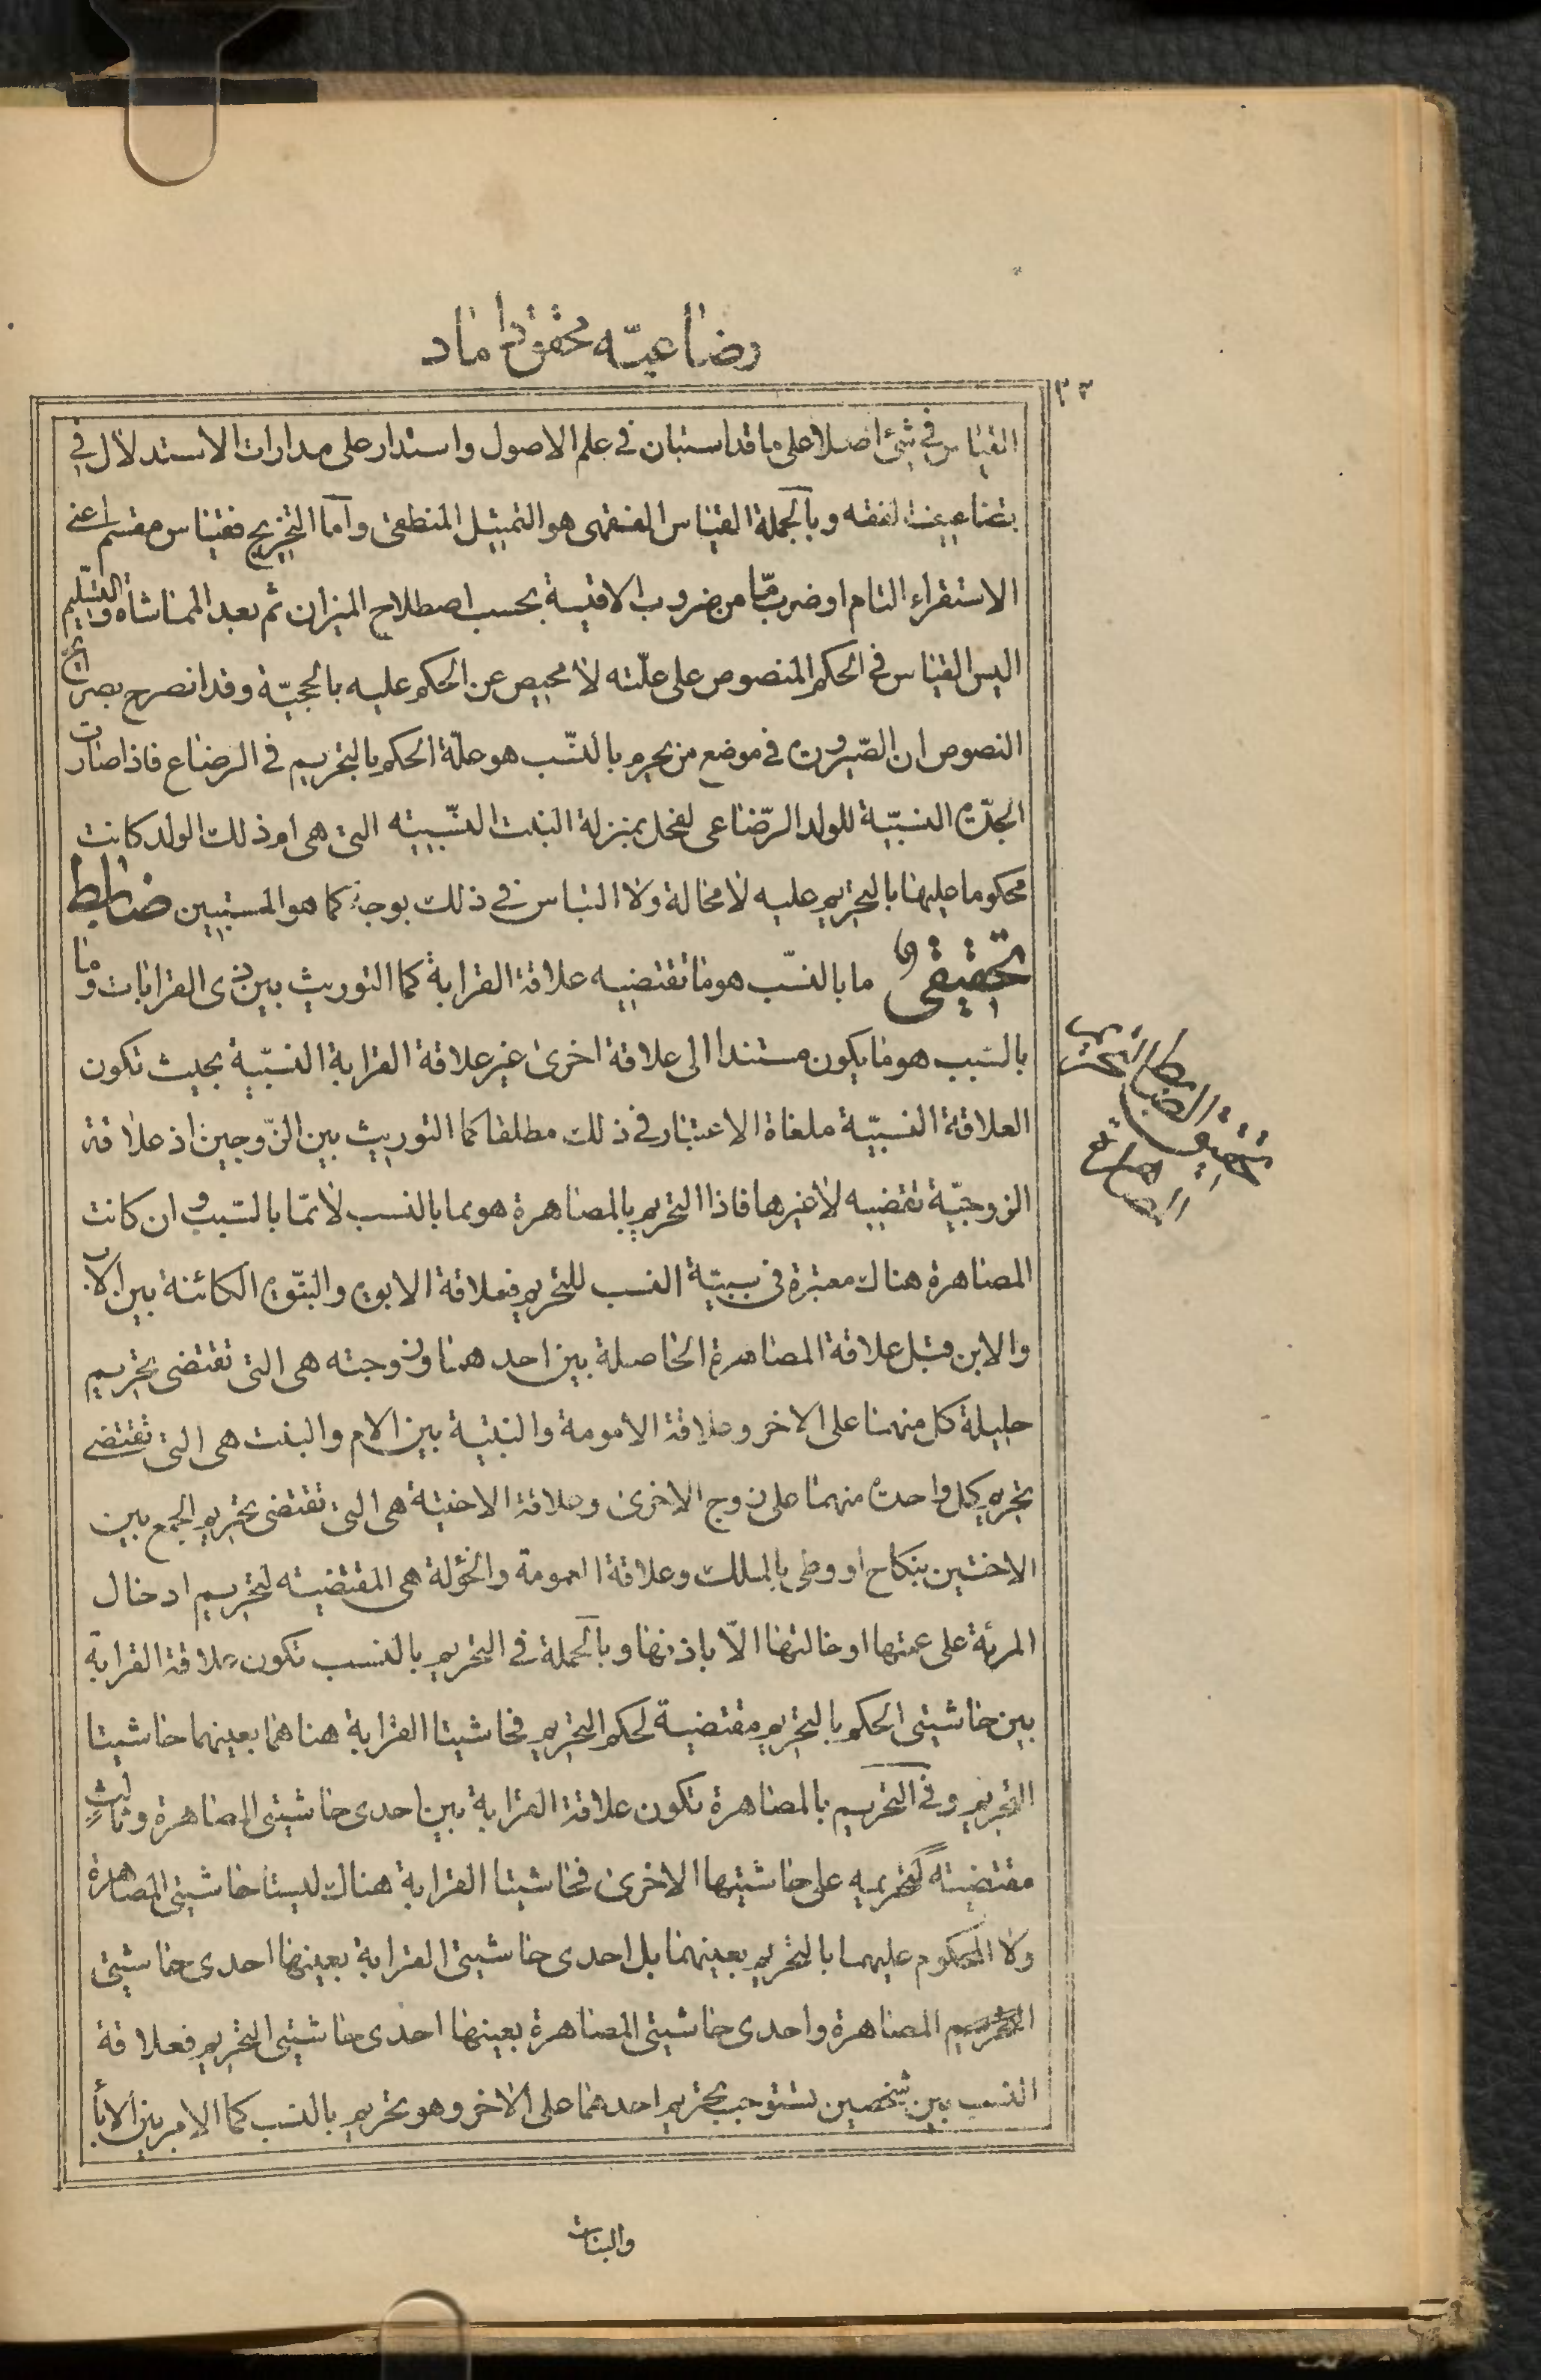 رضاعيّه محقق داماد
٣٣
القياس في شئ اصلا على ما قد استبان في علم الاصول واستدار على مدارات الاستدلال في
تضاعيف الفقه وبالجملة القياس الفقهى هو التمثيل المنطقى واما التخريج فقياس مقسم اعنى
الاستقراء التام او ضرب مّا من ضروب الاقيسة بحسب اصطلاح الميزان ثم بعد المماشاة والتسليم
اليس القياس في الحكم المنصوص على علّته لا محيص عن الحكم عليه بالحجيّة وقد انصرح بصرائح
النصوص ان الصّيرورة في موضع من يحرم بالنّسب هو علّة الحكم بالتحريم في الرضاع فاذا صارت
الجدّة النسبيّة للولد الرّضاعى لفحل بمنزلة البنت النسّبيّه التى هى ام ذلك الولد كانت
محكوما عليها بالتحريم عليه لا محالة ولا التباس في ذلك بوجه كما هو المستبين ضابط
تحقيقىّ ما بالنسّب هو ما تقتضيه علاقة القرابة كما التوريث بين ذى القرابات وما
بالسّبب هو ما يكون مستندا الى علاقة اخرى غير علاقة القرابة النسّبيّة بحيث تكون
العلاقة النسبيّة ملغاة الاعتبار في ذلك مطلقا كما التوريث بين الزّوجين اذ علاقة
الزوجيّة تقضيه لا غيرها فاذا التحريم بالمصاهرة هو مما بالنسب لا ممّا بالسّبب وان كانت
المصاهرة هناك معتبرة في سببيّة النسب للتحريم فعلاقة الابوة والبنّوة الكائنة بين الاب
والابن قبل علاقة المصاهرة الحاصلة بين احدهما وزوجته هى التى تقتضى تحريم
حليلة كل منهما على الاخر وعلاقة الامومة والبنتية بين الام والبنت هى التى تقتضى
تحريم كل واحدة منهما على زوج الاخرى وعلاقة الاختية هى التى تقتضى تحريم الجمع بين
الاختين بنكاح او وطى بالملك وعلاقة العمومة والخؤلة هى المقتضيّه لتحريم ادخال
المرئة على عمتها او خالتها الاّ باذنها وبالجملة في التحريم بالنسب تكون علاقة القرابة
بين حاشيتى الحكم بالتحريم مقتضية لحكم التحريم فحاشيتا القرابة هنا هما بعينهما حاشيتا
التحريم وفى التحريم بالمصاهرة تكون علاقة القرابة بين احدى حاشيتى المصاهرة وثالثٍ
مقتضيته لتحريمه على حاشيتها الاخرى فحاشيتا القرابة هناك ليستا حاشيتى المصاهرة
ولا المحكوم عليهما بالتحريم بعينهما بل احدى حاشيتى القرابة بعينها احدى حاشيتى
التحريم المصاهرة واحدى حاشيتى المصاهرة بعينها احدى حاشيتى التحريم فعلاقة
النسب بين شخصين تستوجب تحريم احدهما على الاخر وهو تحريم بالنسب كما الامر بين الابأ
والبنات